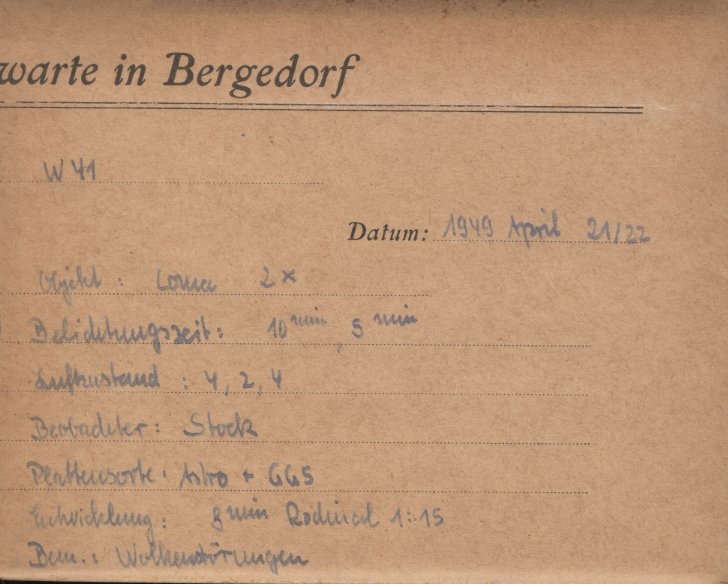 warte in Bergedorf
W 41
Datum: 1949 April 21/22
Objekt : Coma 2 ×
Belichtungszeit: 10 min, 5 min
Luftzustand : 4, 2, 4
Beobachter: Stock
Plattensorte: Astro + GG5
Entwicklung: 8 min Rodinal 1:15
Bem.: Wolkenstörungen